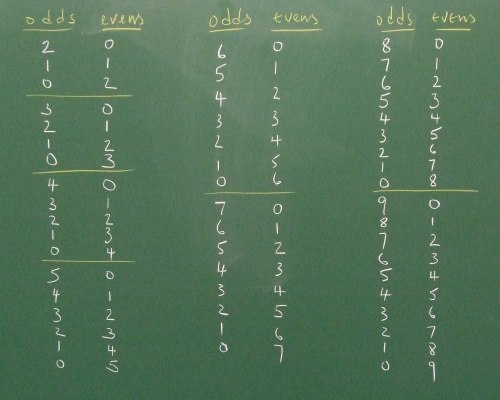 odds evens
2 0
1 1
0 2
3 0
2 1
1 2
0 3
4 0
3 1
2 2
1 3
0 4
5 0
4 1
3 2
2 3
1 4
0 5
odds evens
6 0
5 1
4 2
3 3
2 4
1 5
0 6
7 0
6 1
5 2
4 3
3 4
2 5
1 6
0 7
odds evens
8 0
7 1
6 2
5 3
4 4
3 5
2 6
1 7
0 8
9 0
8 1
7 2
6 3
5 4
4 5
3 6
2 7
1 8
0 9